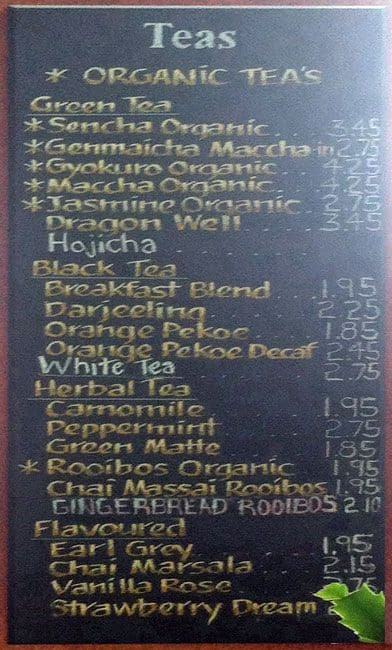 Teas
* ORGANIC TEA'S
Green Tea
* Sencha Organic . . 3.45
* Genmaicha Maccha-iri 2.75
* Gyokuro Organic . . . 4.25
* Maccha Organic . . . 4.25
* Jasmine Organic . . 2.75
Dragon Well . . . 3.45
Hojicha
Black Tea
Breakfast Blend . . . 1.95
Darjeeling . . . 2.25
Orange Pekoe . . . 1.85
Orange Pekoe Decaf 2.45
White Tea . . . 2.75
Herbal Tea
Camomile . . . 1.95
Peppermint . . . 2.75
Green Matte . . . 1.85
* Rooibos Organic . . 1.95
Chai Massai Rooibos 1.95
GINGERBREAD ROOIBOS 2.10
Flavoured
Earl Grey . . . 1.95
Chai Marsala . . . 2.15
Vanilla Rose . . .
Strawberry Dream